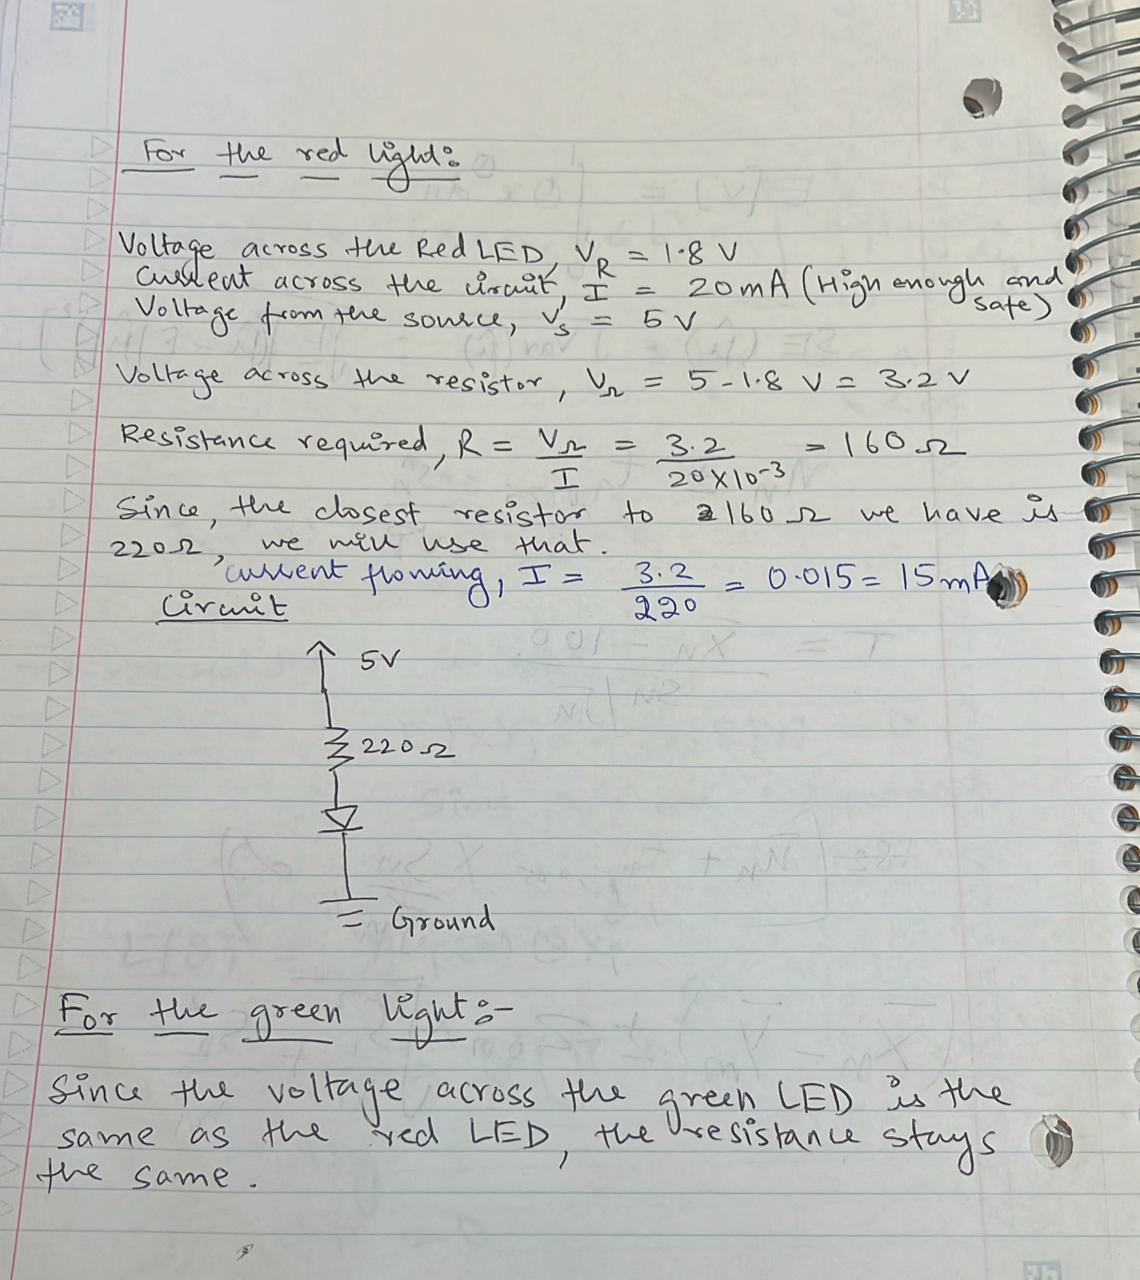 For the red light:
Voltage across the Red LED, V_R = 1.8 V
Current across the circuit, I = 20mA (High enough and safe)
Voltage from the source, V_S = 5 V
Voltage across the resistor, V_Ω = 5-1.8 V = 3.2 V
Resistance required, R = V_Ω / I = 3.2 / 20X10^-3 = 160 Ω
Since, the closest resistor to 160 Ω we have is
220Ω, we will use that.
current flowing, I = 3.2 / 220 = 0.015 = 15mA
Circuit
5V
220Ω
Ground
For the green light:-
Since the voltage across the green LED is the
same as the red LED, the resistance stays
the same.